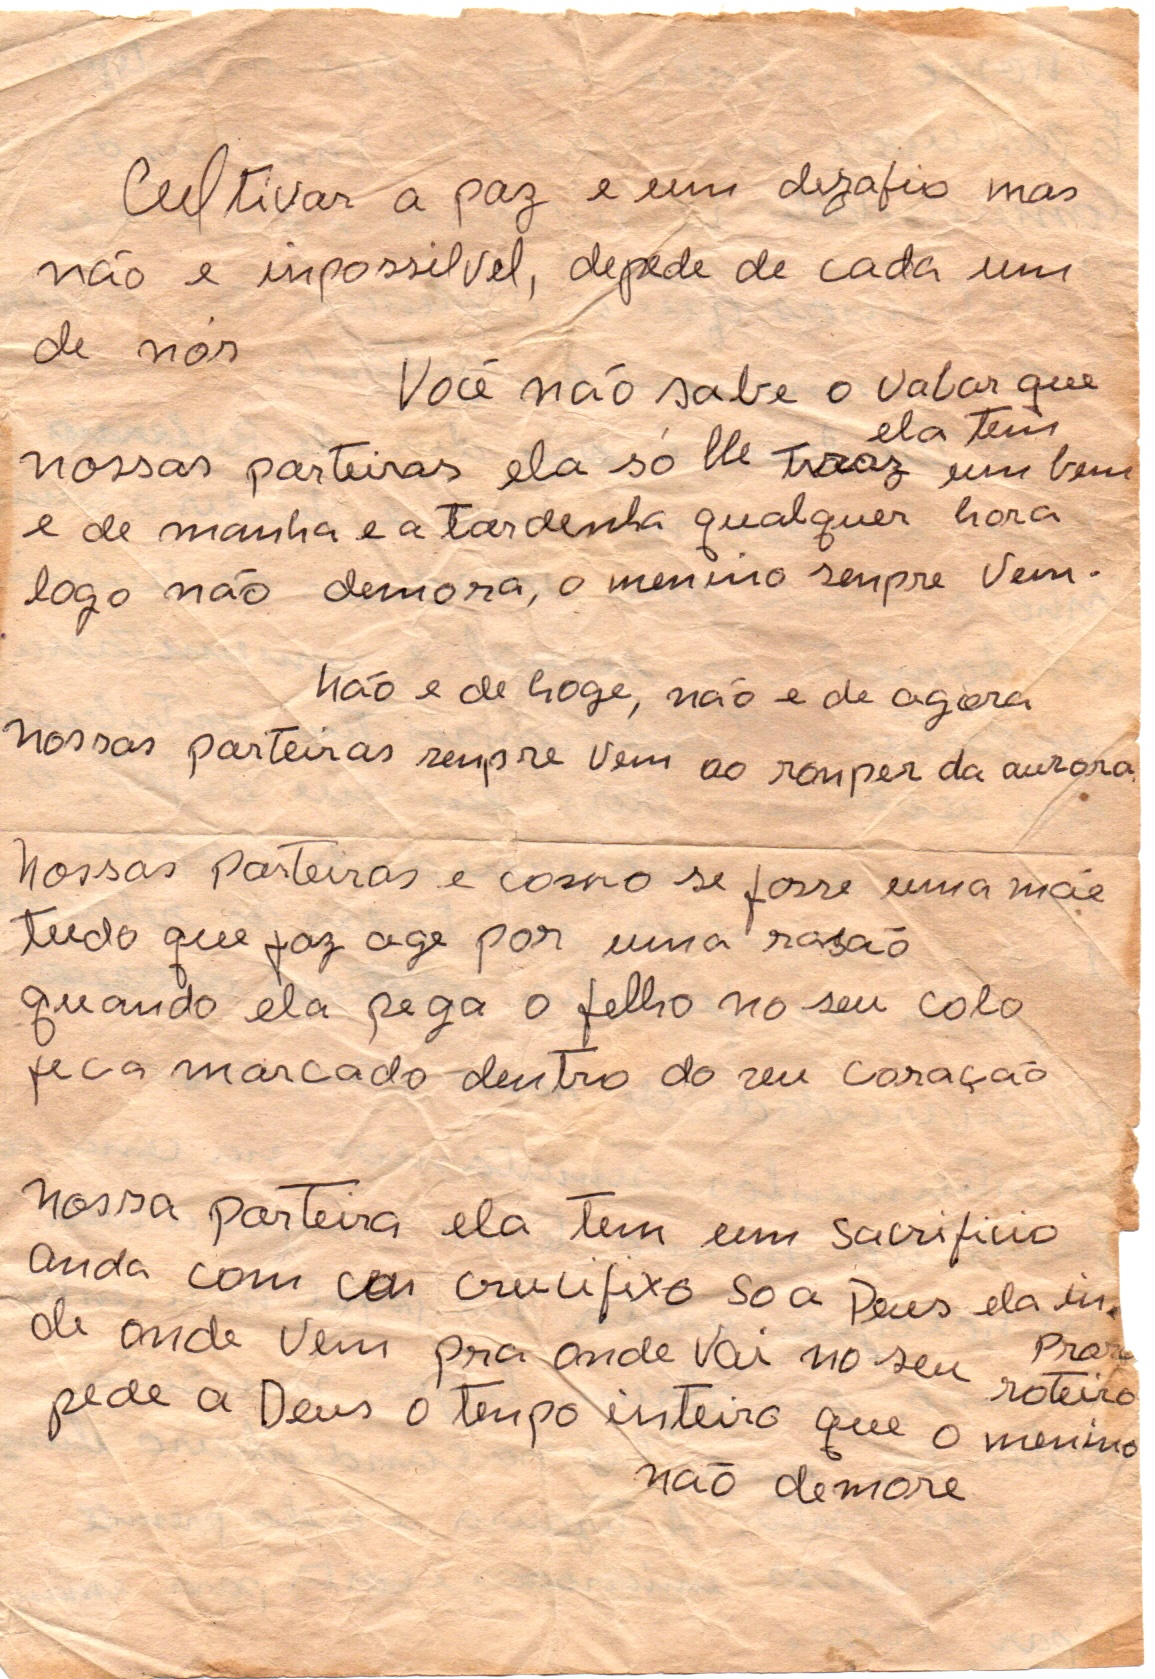 Cultivar a paz e um dezafio mas
não e inpossilvel, depede de cada um
de nós
Você não sabe o valor que
ela tem
nossas parteiras ela só lle traz um bem
e de manha e a tardenha qualquer hora
logo não demora, o menino senpre vem.
não e de hoge, não e de agora
nossas parteiras senpre vem ao ronper da aurora
nossas parteiras e como se fosse uma mãe
tudo que faz age por uma rasão
quando ela pega o felho no seu colo
feca marcado dentro do seu coração
nossa parteira ela tem um sacrificio
anda com crucifixo so a Deus ela in
prora
de onde vem pra onde vai no seu
roteiro
pede a Deus o tenpo inteiro que o menino
não demore